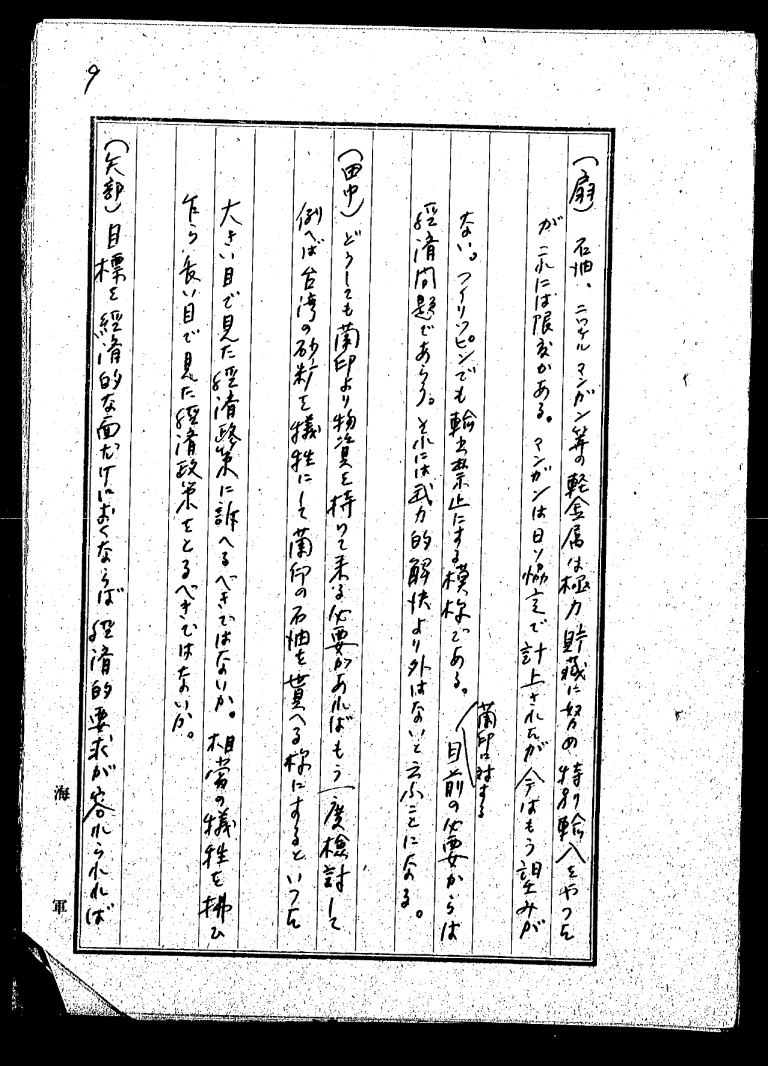 9
(扇) 石油、ニッケル マンガン等の軽金属は極力貯蔵に努め特別輸入をやつた
がこれには限度がある。マンガンは日ソ協定で計上されたが今はもう望みが
ない。フイリッピンでも輸出禁止にする模様である。目前の必要からは
蘭印に対する
経済問題であらう。それには武力的解決より外はないと云ふことになる。
(田中) どうしても蘭印より物資を持つて来る必要があればもう一度検討して
例へば台湾の砂糖を犠牲にして蘭印の石油を貰へる様にするといつた
大きい目で見た経済政策に訴へるべきではないか。相当の犠牲を拂ひ
乍ら長い目で見た経済政策をとるべきではないか。
(矢部) 目標を経済的な面だけにおくならば経済的要求が容れられれば
海軍